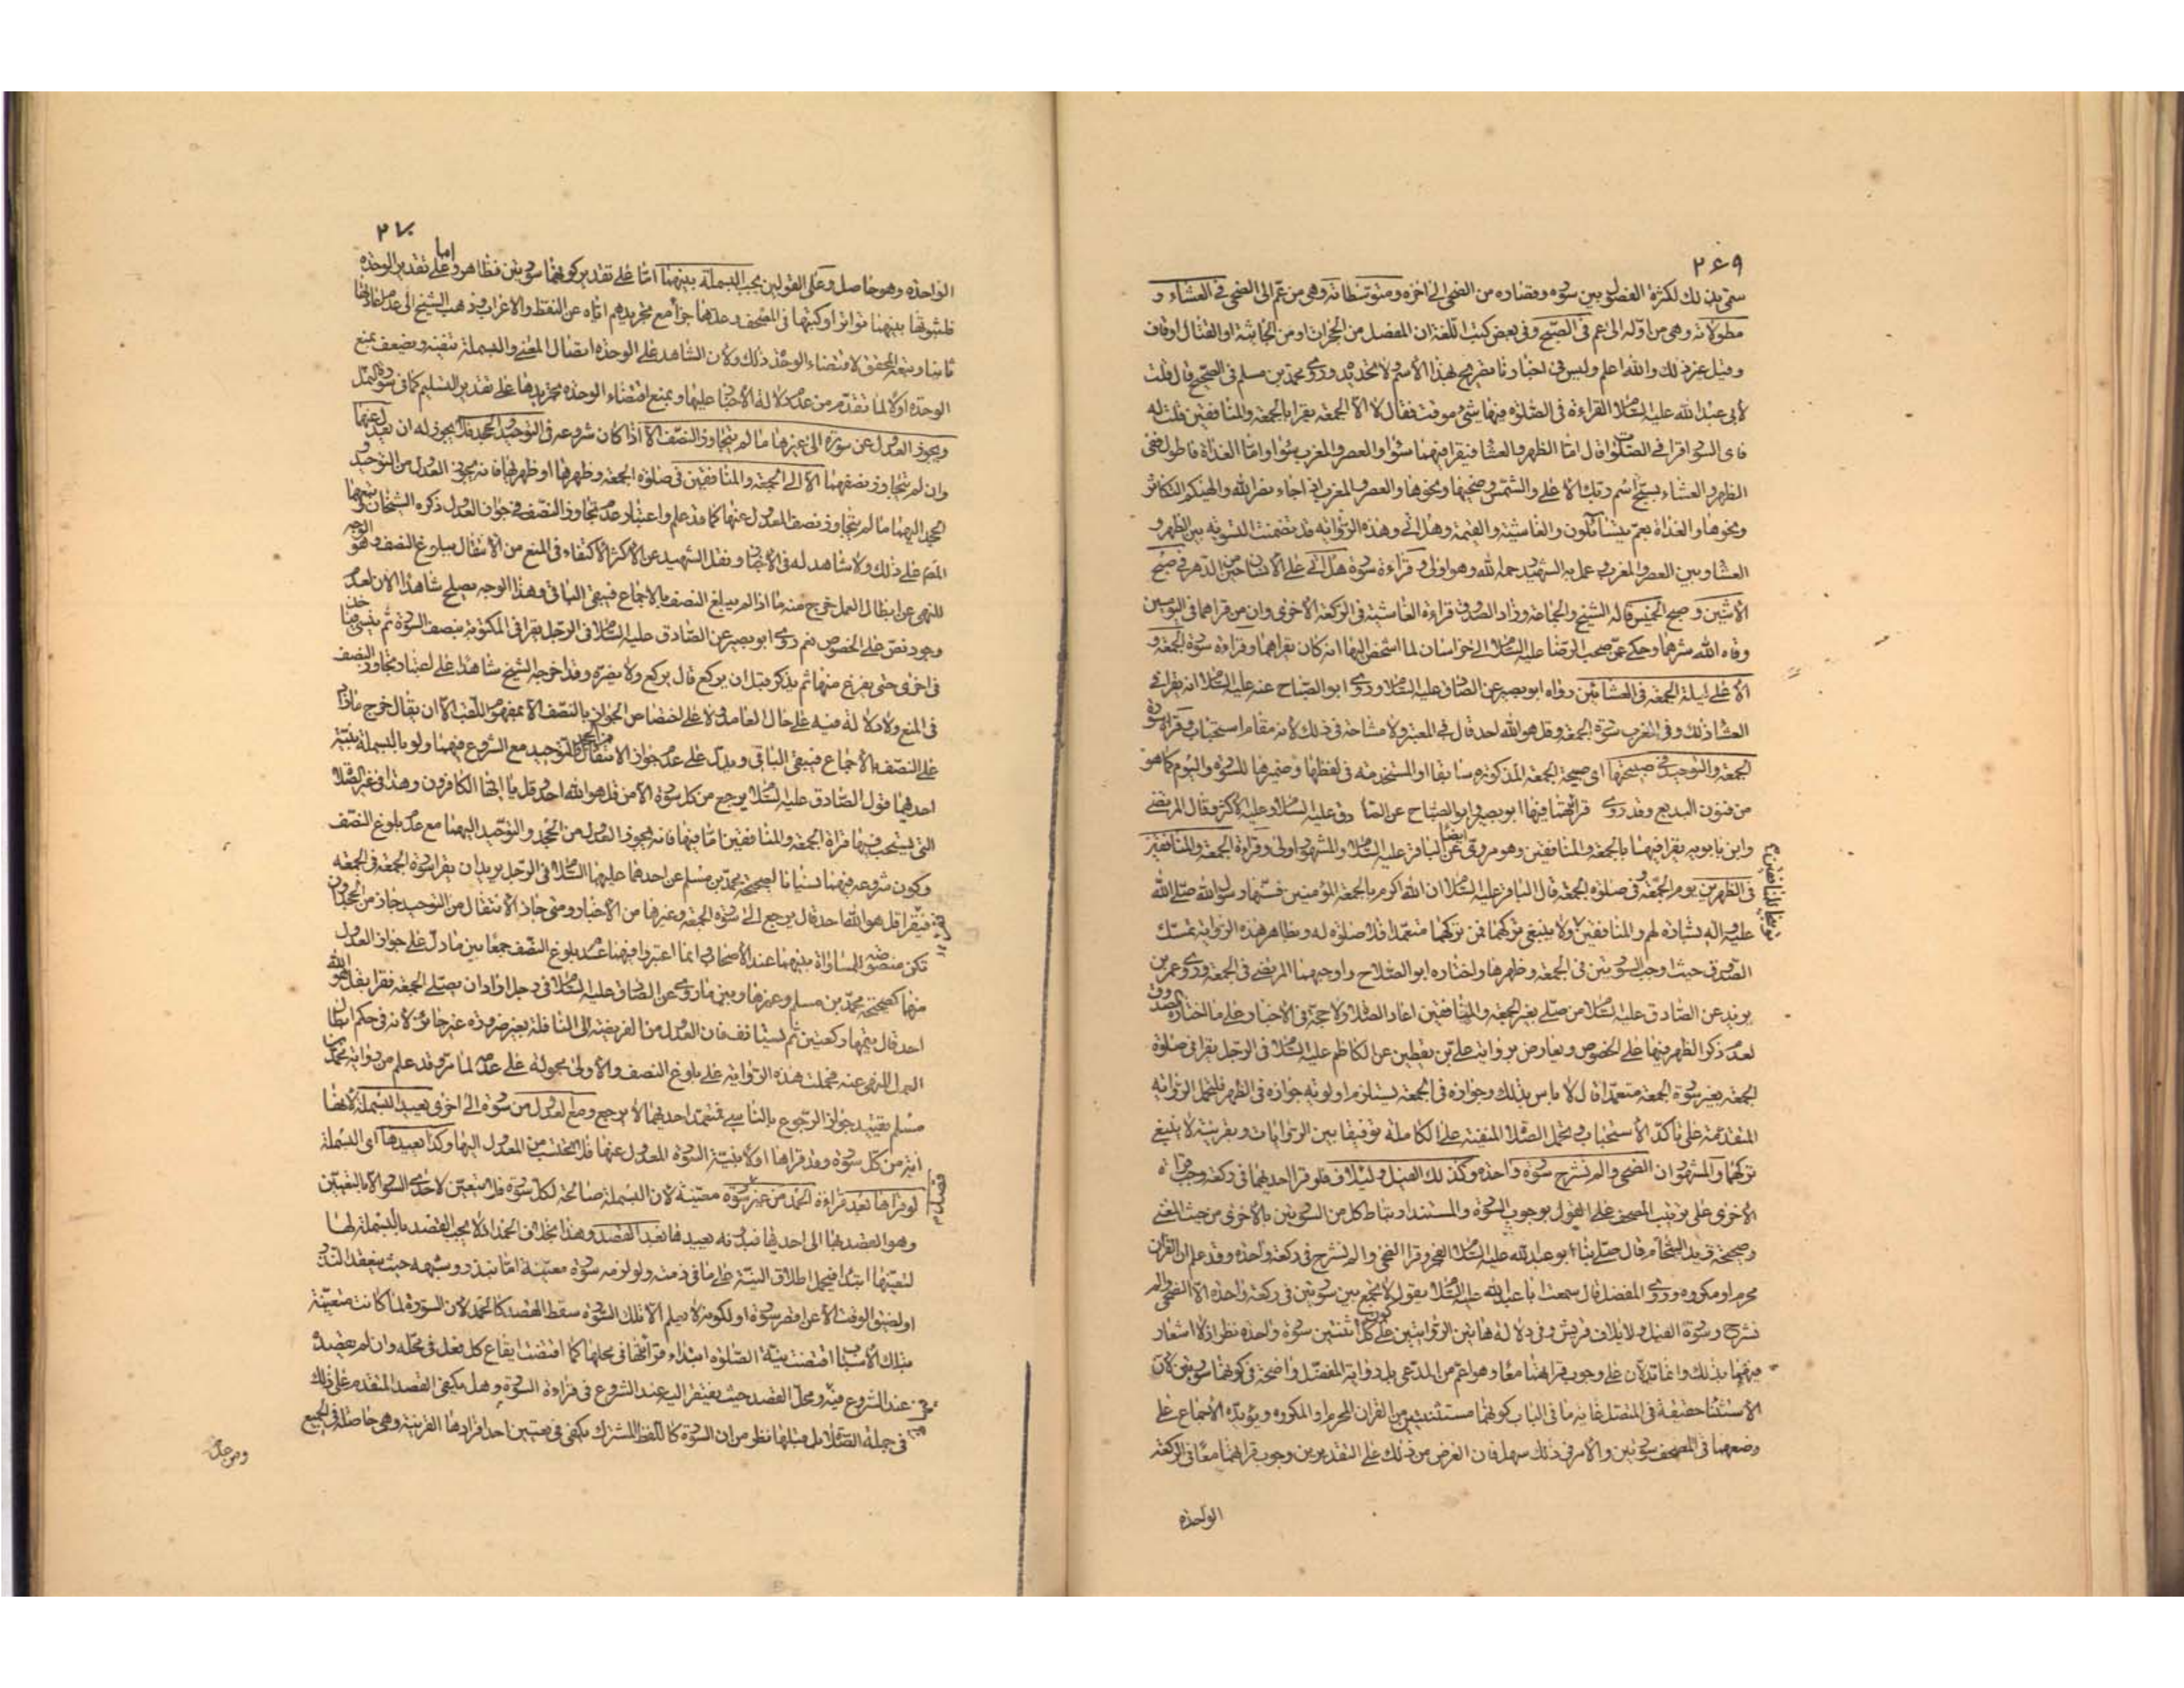 ٢٦٩
سمّى بذلك لكثرة الفصول بين سوره وقصاره من الضحى الى اخره ومتوسطاته وهى من عمّ الى الضحى فى العشاء و
مطولاته وهى من اوّله الى عم فى الصّبح وفى بعض كتب اللّغة ان المفصل من الحجرات او من الجاثية او القتال او قاف
وقيل غير ذلك والله اعلم وليس فى اخبارنا تصريح بهذا الاسم ولا تحديده وروى محمد بن مسلم فى الصّحيح قال قلت
لابى عبد الله عليه السّلام القراءة فى الصّلوة فيها شئ موقت فقال لا الا الجمعة يقرا بالجمعة والمنافقين قلت له
فاى السور اقرا فى الصّلوات قال امّا الظهر والعشا فيقرا فيهما سواء والعصر والمغرب سواء وامّا الغداة فاطول ففى
الظهر والعشاء بسبّح اسم ربّك الاعلى والشّمس وضحيها ونحوها والعصر والمغرب اذا جاء نصر الله والهيكم التكاثر
ونحوها والغداة بعمّ يتساءلون والغاشية والقيمة وهل اتى وهذه الرّواية قد تضمنت التسوية بين الظهر و
العشا وبين العصر والمغرب وعمل به الشّهيد رحمه الله وهو اولى وقراءة سورة هل اتى على الانسان حين من الدّهر فى صبح
الاثنين وصبح الخميس قاله الشّيخ والجماعة وزاد الصّدوق قراءة الغاشية فى الركعة الاخرى وان من قراهما فى اليومين
وقاه الله شرهما وحكى عمّن صحب الرّضا عليه السّلام الى خراسان لما اشخص اليها انه كان يقراهما وقراءة سورة الجمعة و
الاعلى ليلة الجمعة فى العشائين رواه ابو بصير عن الصّادق عليه السّلام وروى ابو الصّباح عنه عليه السّلام انه يقرا فى
العشا ذلك وفى المغرب سورة الجمعة وقل هو الله احد قال فى المعتبر ولا مشاحة فى ذلك لانه مقام استحباب وقراءة سورة
الجمعة والتوحيد فى صبيحتها اى صبيحة الجمعة المذكورة سابقا او المستخدمة فى لفظها وضميرها للسورة واليوم كما هو
من فنون البديع وقد روى قراءتهما فيها ابو بصير وابو الصّباح عن الصّادق عليه السّلام وعليه الاكثر وقال المرتضى
وابن بابويه يقرا فيهما بالجمعة والمنافقين وهو مروىّ ايضا عن الباقر عليه السّلام والمشهور اولى وقراءة الجمعة والمنافقين
فى الظهرين يوم الجمعة وفى صلوة الجمعة قال الباقر عليه السّلام ان الله اكرم بالجمعة المؤمنين فسنّها رسول الله صلّى الله
عليه واله بشارة لهم والمنافقين توبيخا للمنافقين ولا ينبغى تركهما فمن تركهما متعمّدا فلا صلوة له وبظاهر هذه الرّواية تمسّك
الصّدوق حيث اوجب السّورتين فى الجمعة وظهرها واختاره ابو الصّلاح واوجبهما المرتضى فى الجمعة وروى عمر بن
يزيد عن الصّادق عليه السّلام من صلّى بغير الجمعة والمنافقين اعاد الصّلاة ولا حجّة فى الاخبار على ما اختاره الصّدوق
لعدم ذكر الظهر فيها على الخصوص ويعارض برواية علىّ بن يقطين عن الكاظم عليه السّلام فى الرّجل يقرا فى صلوة
الجمعة بغير سورة الجمعة متعمّدا قال لا باس بذلك وجوازه فى الجمعة يستلزم اولوية جوازه فى الظهر فلتحمل الرّواية
المتقدّمة على تاكّد الاستحباب وتحمل الصّلاة المنفية على الكاملة توفيقا بين الرّوايات وبقرينة لا ينبغى
تركهما والمشهور ان الضحى والم نشرح سورة واحدة وكذلك الفيل ولايلاف فلو قرا احديهما فى ركعة وجب قراءة
الاخرى على ترتيب المصحف على القول بوجوب السّورة والمستند ارتباط كل من السّورتين بالاخرى من حيث المعنى
وصحيحة زيد الشّحام قال صلّى بنا ابو عبد الله عليه السّلام الفجر وقرا الضحى والم نشرح فى ركعة واحدة وقد علم ان القران
محرم او مكروه وروى المفضل قال سمعت ابا عبد الله عليه السّلام يقول لا تجمع بين سورتين فى ركعة واحدة الّا الضحى والم
نشرح وسورة الفيل ولايلاف قريش وفى دلالة هاتين الروايتين على كون كل اثنتين سورة واحدة نظر اذ لا اشعار
فيهما بذلك وانما تدلان على وجوب قراءتهما معا وهو اعم من المدعى بل رواية المفضّل واضحة فى كونهما سورتين لان
الاستثنا حقيقة فى المتصل غاية ما فى الباب كونهما مستثنيتين من القران المحرم او المكروه ويؤيده الاجماع على
وضعهما فى المصحف سورتين والامر فى ذلك سهل فان الغرض من ذلك على التقديرين وجوب قراءتهما معا فى الركعة
الواحدة
٢٧٠
الواحدة وهو حاصل وعلى القولين يجب البسملة بينهما امّا على تقدير كونهما سورتين فظاهر وامّا على تقدير الوحدة
فلثبوتها بينهما تواترا وكتبها فى المصحف وعدها جزا مع تجريدهم ايّاه عن النقط والاعراب وذهب الشيخ الى عدم اعادتها
ثانيا وتبعه المحقق لاقتضاء الوحدة ذلك ولان الشاهد على الوحدة اتصال المعنى والبسملة تنفيه ويضعف بمنع
الوحدة اولا لما تقدّم من عدم دلالة الاخبار عليها وبمنع اقتضاء الوحدة تجريدها على تقدير التسليم كما فى سورة النمل
ويجوز العدول عن سورة الى غيرها ما لم يتجاوز النصّف الا اذا كان شروعه فى التوحيد والجحد فلا يجوز له ان يعدل عنهما
وان لم يتجاوز نصفهما الا الى الجمعة والمنافقين فى صلوة الجمعة وظهرها او ظهريها فانه يجوز العدول من التوحيد و
الجحد اليهما ما لم يتجاوز نصف المعدول عنها كما قد علم واعتبار عدم تجاوز النّصف فى جواز العدول ذكره الشيخان وتبعهما
القوم على ذلك ولا شاهد له فى الاخبار ونقل الشّهيد عن الاكثر الاكتفاء فى المنع من الانتقال ببلوغ النصف وهو الوجه
للنهى عن ابطال العمل خرج منه ما اذا لم يبلغ النصف بالاجماع فيبقى الباقى وهذا الوجه يصلح شاهدا الان لعدم
وجود نصّ على الخصوص نعم روى ابو بصير عن الصّادق عليه السّلام فى الرّجل يقرا فى المكتوبة بنصف السّورة ثم ينسى فياخذ
فى اخرى حتى يفرغ منها ثم يذكر قبل ان يركع قال يركع ولا يضرّه وقد اخرجه الشّيخ شاهدا على اعتبار تجاوز النصف
فى المنع ولا دلالة فيه على حال العامد ولا على اختصاص الجواز بالنّصف الا بمفهوم اللّقب الّا ان يقال خرج ما زاد
على النّصف بالاجماع فيبقى الباقى ويدلّ على عدم جواز الانتقال من الجحد والتّوحيد مع الشروع فيهما ولو بالبسملة بنيّة
احدهما قول الصّادق عليه السّلام يرجع من كل سورة الا من قل هو الله احد وقل يا ايّها الكافرون وهذا فى غير الصّلاة
التى يستحب فيها قراة الجمعة والمنافقين امّا فيها فانه يجوز العدول من الجحد والتوحيد اليهما مع عدم بلوغ النصّف
وكون شروعه فيهما نسيانا لصحيحة محمّد بن مسلم عن احدهما عليهما السّلام فى الرّجل يريد ان يقرا سورة الجمعة فى الجمعة
فيقرا قل هو الله احد قال يرجع الى سورة الجمعة وغيرها من الاخبار ومتى جاز الانتقال من التوحيد جاز من الجحد وان لم
تكن منصوصة للمساواة بينهما عند الاصحاب وانما اعتبروا فيهما عدم بلوغ النّصف جمعا بين ما دلّ على جواز العدول
منها كصحيحة محمّد بن مسلم وغيرها وبين ما روى عن الصّادق عليه السّلام فى رجل اراد ان يصلّى الجمعة فقرا بقل هو الله
احد قال يتمها ركعتين ثم يستانف فان العدول من الفريضة الى النافلة بغير ضرورة غير جائز لانه فى حكم ابطال
العمل المنهى عنه فحملت هذه الرّواية على بلوغ النصف والاولى محمولة على عدمه لما مرّ وقد علم من رواية محمّد بن
مسلم تقييد جواز الرّجوع بالناسى فمتعمّد احديهما لا يرجع ومع العدول من سورة الى اخرى يعيد البسملة لانها
اية من كلّ سورة وقد قراها اولا بنيّة السّورة المعدول عنها فلا تحتسب من المعدول اليها وكذا يعيدها اى البسملة
لو قراها بعد قراءة الحمد من غير قصد سورة معيّنة لان البسملة صالحة لكلّ سورة فلا تتعيّن لاحدى السّور الّا بالتعيين
وهو القصد بها الى احديها فبدونه يعيدها بعد القصد وهذا بخلاف الحمد اذ لا يجب القصد بالبسملة لها
لتعيّنها ابتداء فيحمل اطلاق النيّة على ما فى ذمته ولو لزمه سورة معيّنة امّا بنذر وشبهه حيث ينعقد النذر
او لضيق الوقت الا عن اقصر سورة او لكونه لا يعلم الا تلك السّورة سقط القصد كالحمد لان السّورة لما كانت متعيّنة
بتلك الاسباب اقتضت نيّة الصّلوة ابتداء قراءتها فى محلها كما اقتضت ايقاع كل فعل فى محلّه وان لم يقصد
عند الشروع فيه ومحلّ القصد حيث يفتقر اليه عند الشروع فى قراءة السّورة وهل يكفى القصد المتقدم على ذلك
فى جملة الصّلاة بل قبلها نظر من ان السّورة كاللّفظ المشترك يكفى فى تعيين احد افرادها القرينة وهى حاصلة فى الجميع
ومن محل